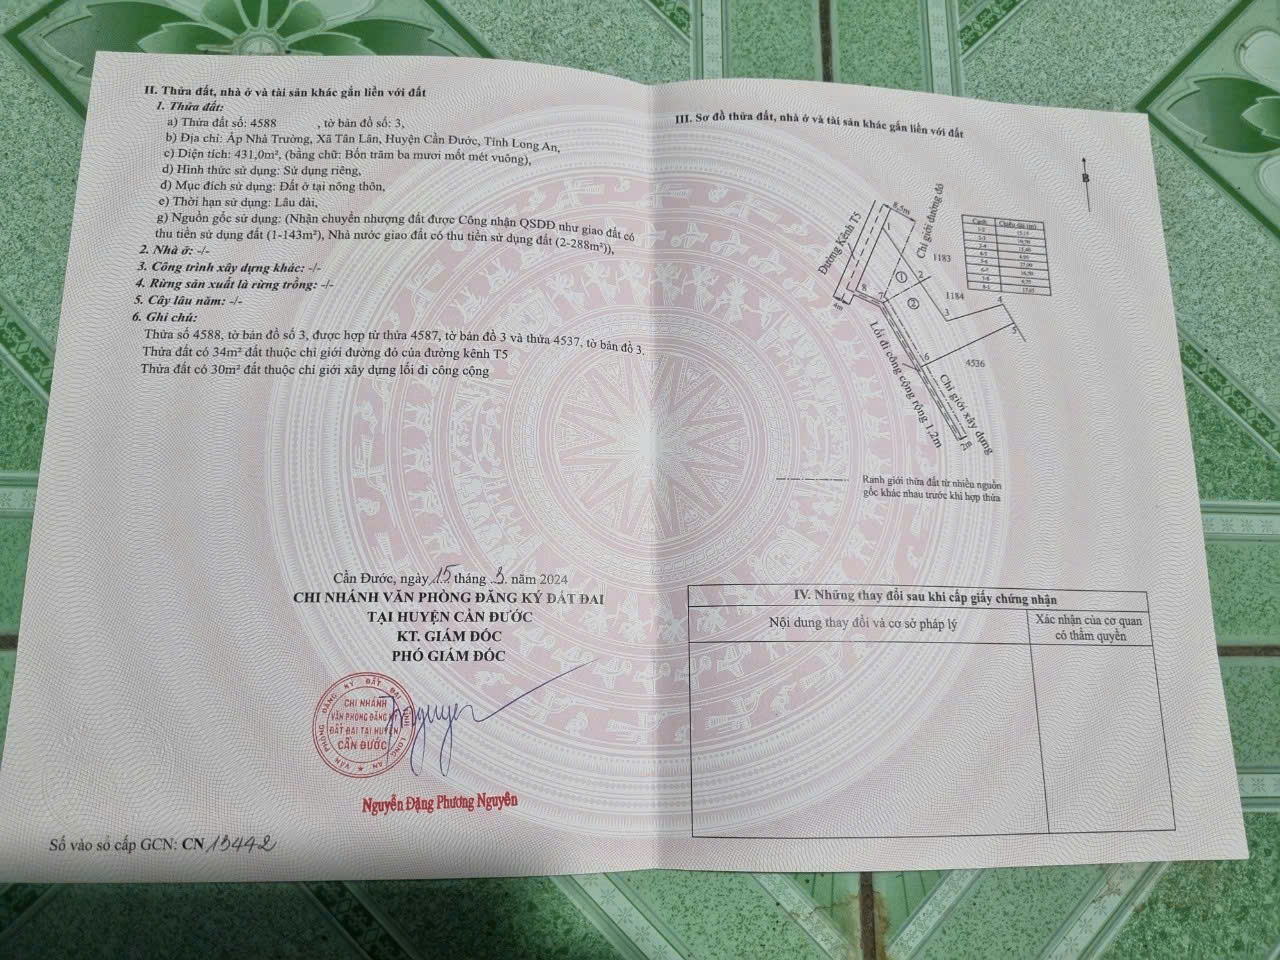 II. Thửa đất, nhà ở và tài sản khác gắn liền với đất
1. Thửa đất:
a) Thửa đất số: 4588 , tờ bản đồ số: 3,
b) Địa chỉ: Ấp Nhà Trường, Xã Tân Lân, Huyện Cần Đước, Tỉnh Long An,
c) Diện tích: 431,0m², (bằng chữ: Bốn trăm ba mươi mốt mét vuông),
d) Hình thức sử dụng: Sử dụng riêng,
đ) Mục đích sử dụng: Đất ở tại nông thôn,
e) Thời hạn sử dụng: Lâu dài,
g) Nguồn gốc sử dụng: (Nhận chuyển nhượng đất được Công nhận QSDĐ như giao đất có
thu tiền sử dụng đất (1-143m²), Nhà nước giao đất có thu tiền sử dụng đất (2-288m²)),
2. Nhà ở: -/-
3. Công trình xây dựng khác: -/-
4. Rừng sản xuất là rừng trồng: -/-
5. Cây lâu năm: -/-
6. Ghi chú:
Thửa số 4588, tờ bản đồ số 3, được hợp từ thửa 4587, tờ bản đồ 3 và thửa 4537, tờ bản đồ 3.
Thửa đất có 34m² đất thuộc chỉ giới đường đỏ của đường kênh T5
Thửa đất có 30m² đất thuộc chỉ giới xây dựng lối đi công cộng
Cần Đước, ngày 15 tháng 3. năm 2024
CHI NHÁNH VĂN PHÒNG ĐĂNG KÝ ĐẤT ĐAI
TẠI HUYỆN CẦN ĐƯỚC
KT. GIÁM ĐỐC
PHÓ GIÁM ĐỐC
VĂN PHÒNG ĐĂNG KÝ ĐẤT ĐAI TỈNH LONG AN
CHI NHÁNH
VĂN PHÒNG ĐĂNG KÝ
ĐẤT ĐAI TẠI HUYỆN
CẦN ĐƯỚC
Nguyễn Đặng Phương Nguyên
Số vào sổ cấp GCN: CN 13442
III. Sơ đồ thửa đất, nhà ở và tài sản khác gắn liền với đất
B
8,5m
Đường Kênh T5
Chỉ giới đường đỏ
1
1183
1
2
8
7
2
1184
4
4m
3
5
6
4536
Lối đi công cộng rộng 1,2m
Chỉ giới xây dựng
Cạnh Chiều dài (m)
Ranh giới thửa đất từ nhiều nguồn
gốc khác nhau trước khi hợp thửa
IV. Những thay đổi sau khi cấp giấy chứng nhận
Nội dung thay đổi và cơ sở pháp lý
Xác nhận của cơ quan
có thẩm quyền